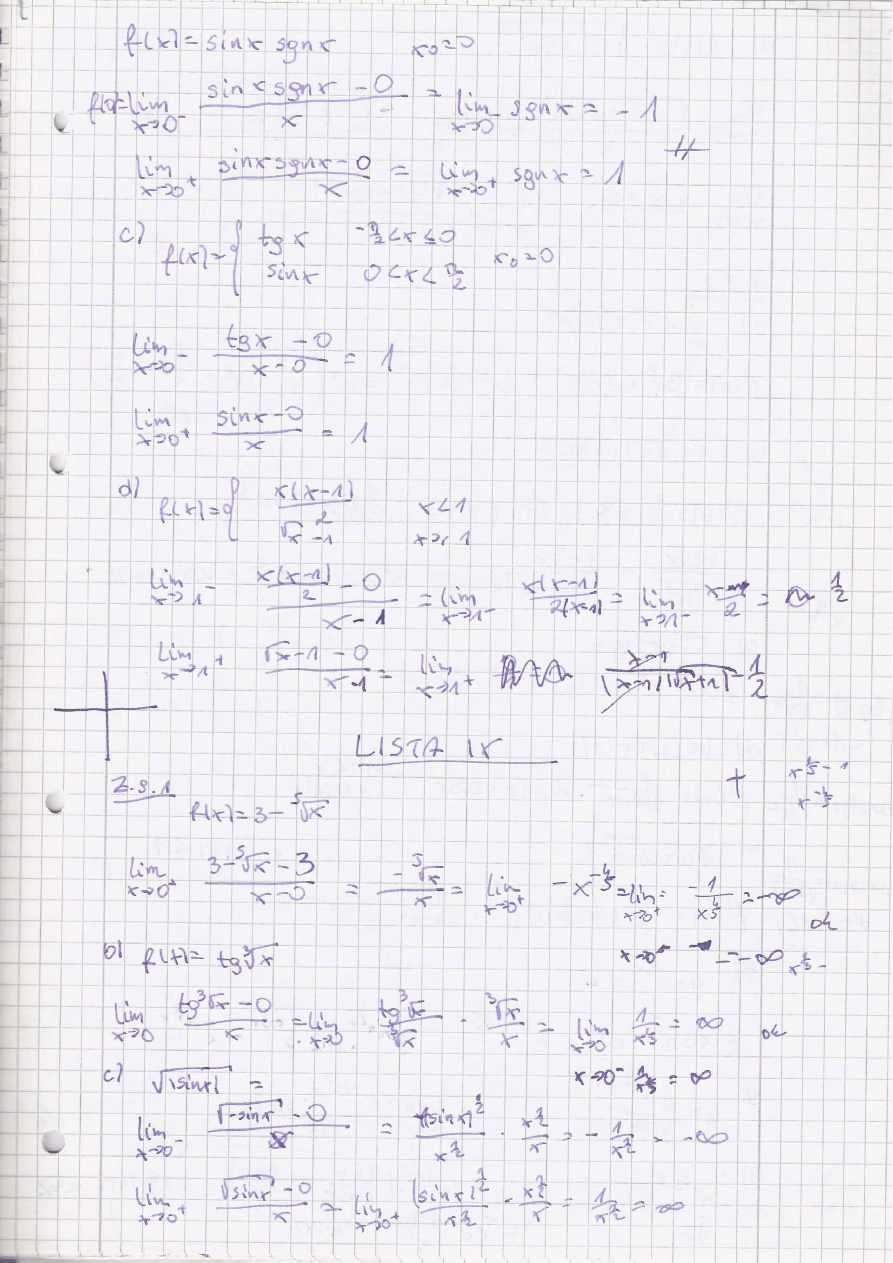 f(x) = sinx sgnx x₀=0
f'(0)= lim x→0⁻ (sinx sgnx − 0)/x = lim x→0⁻ sgnx = −1
lim x→0⁺ (sinx sgnx − 0)/x = lim x→0⁺ sgnx = 1
c) f(x) = { tgx −π/2 < x ≤ 0
sinx 0 < x < π/2 x₀=0
lim x→0⁻ (tgx − 0)/(x − 0) = 1
lim x→0⁺ (sinx − 0)/x = 1
d) f(x) = { x(x−1)/2 x < 1
√x − 1 x ≥ 1
lim x→1⁻ (x(x−1)/2 − 0)/(x − 1) = lim x→1⁻ x(x−1)/2(x−1) = lim x→1⁻ x/2 = 1/2
lim x→1⁺ (√x − 1 − 0)/(x − 1) = lim x→1⁺ (x−1)/((x−1)(√x+1)) = 1/2
LISTA IX
Z.9.1
f(x) = 3 − ⁵√x
lim x→0⁺ (3 − ⁵√x − 3)/(x − 0) = −⁵√x/x = lim x→0⁺ −x^(−4/5) = lim x→0⁺ −1/x^(4/5) = −∞
ok
x→0⁻ = −∞
b) f(x) = tg ³√x
lim x→0 (tg ³√x − 0)/x = lim x→0 tg ³√x/³√x · ³√x/x = lim x→0 1/x^(2/3) = ∞ ok
x→0⁻ 1/x^(2/3) = ∞
c) √|sinx| =
lim x→0⁻ (√−sinx − 0)/x = (sinx)^(1/2)/x^(1/2) · x^(1/2)/x = −1/x^(1/2) = −∞
lim x→0⁺ (√sinx − 0)/x = lim x→0⁺ (sinx)^(1/2)/x^(1/2) · x^(1/2)/x = 1/x^(1/2) = ∞